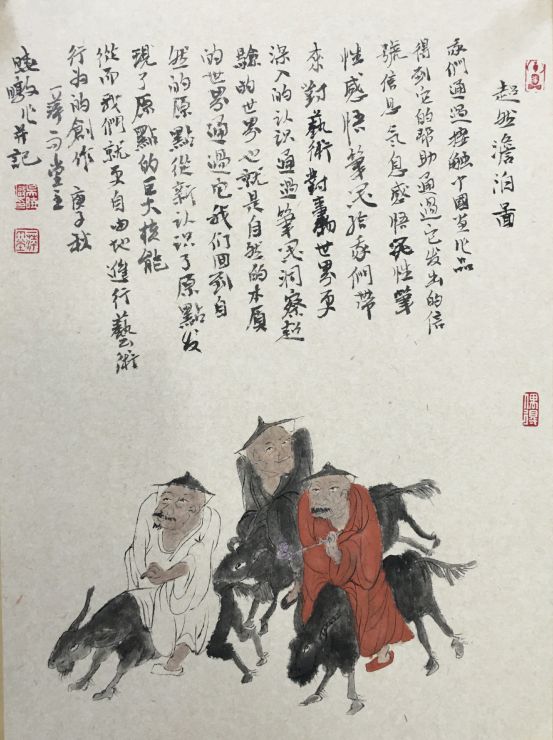 超然澹泊圖
我們通過接觸中國畫作品
得到它的帮助通過它发出的信
號信息氣息感悟性筆
性感悟筆墨给我們带
来對藝術對事物世界更
深入的认识通過筆墨洞察超
験的世界也就是自然的本质
的世界通過它我们回到自
然的原點從新认识了原點发
現了原點的巨大核能
從而我們就更自由地進行藝術
行为的創作 庚子秋
一葦可堂主
作并記
偶得